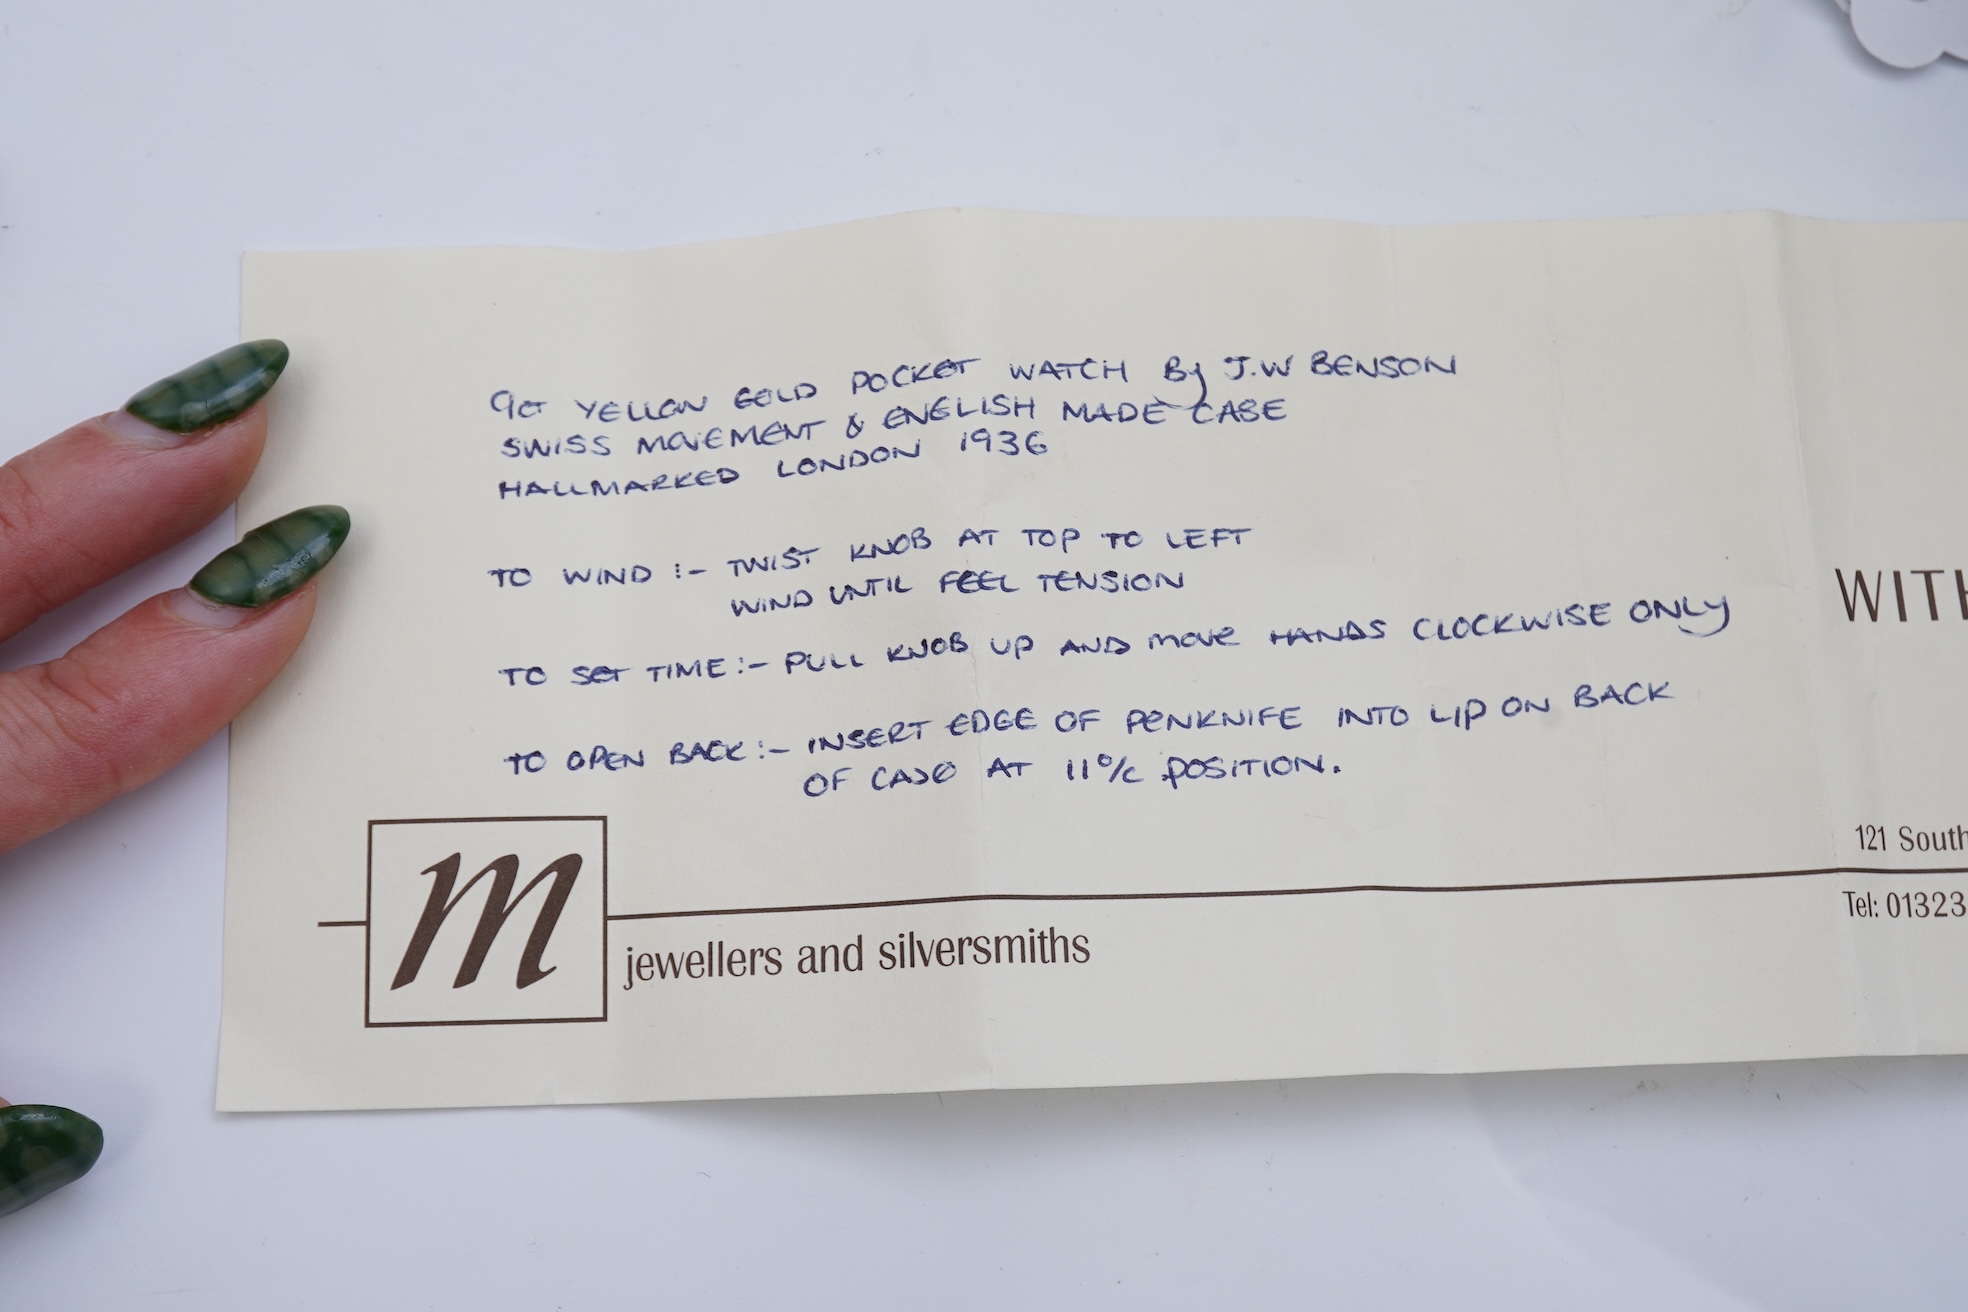 9CT YELLOW GOLD POCKET WATCH By J.W BENSON
SWISS MOVEMENT & ENGLISH MADE CASE
HALLMARKED LONDON 1936
TO WIND :- TWIST KNOB AT TOP TO LEFT
WIND UNTIL FEEL TENSION
TO SET TIME :- PULL KNOB UP AND move HANDS CLOCKWISE ONLY
TO OPEN BACK :- INSERT EDGE OF PENKNIFE INTO LIP ON BACK
OF CASE AT 11 O/C POSITION.
WITH
m
jewellers and silversmiths
121 South
Tel: 01323